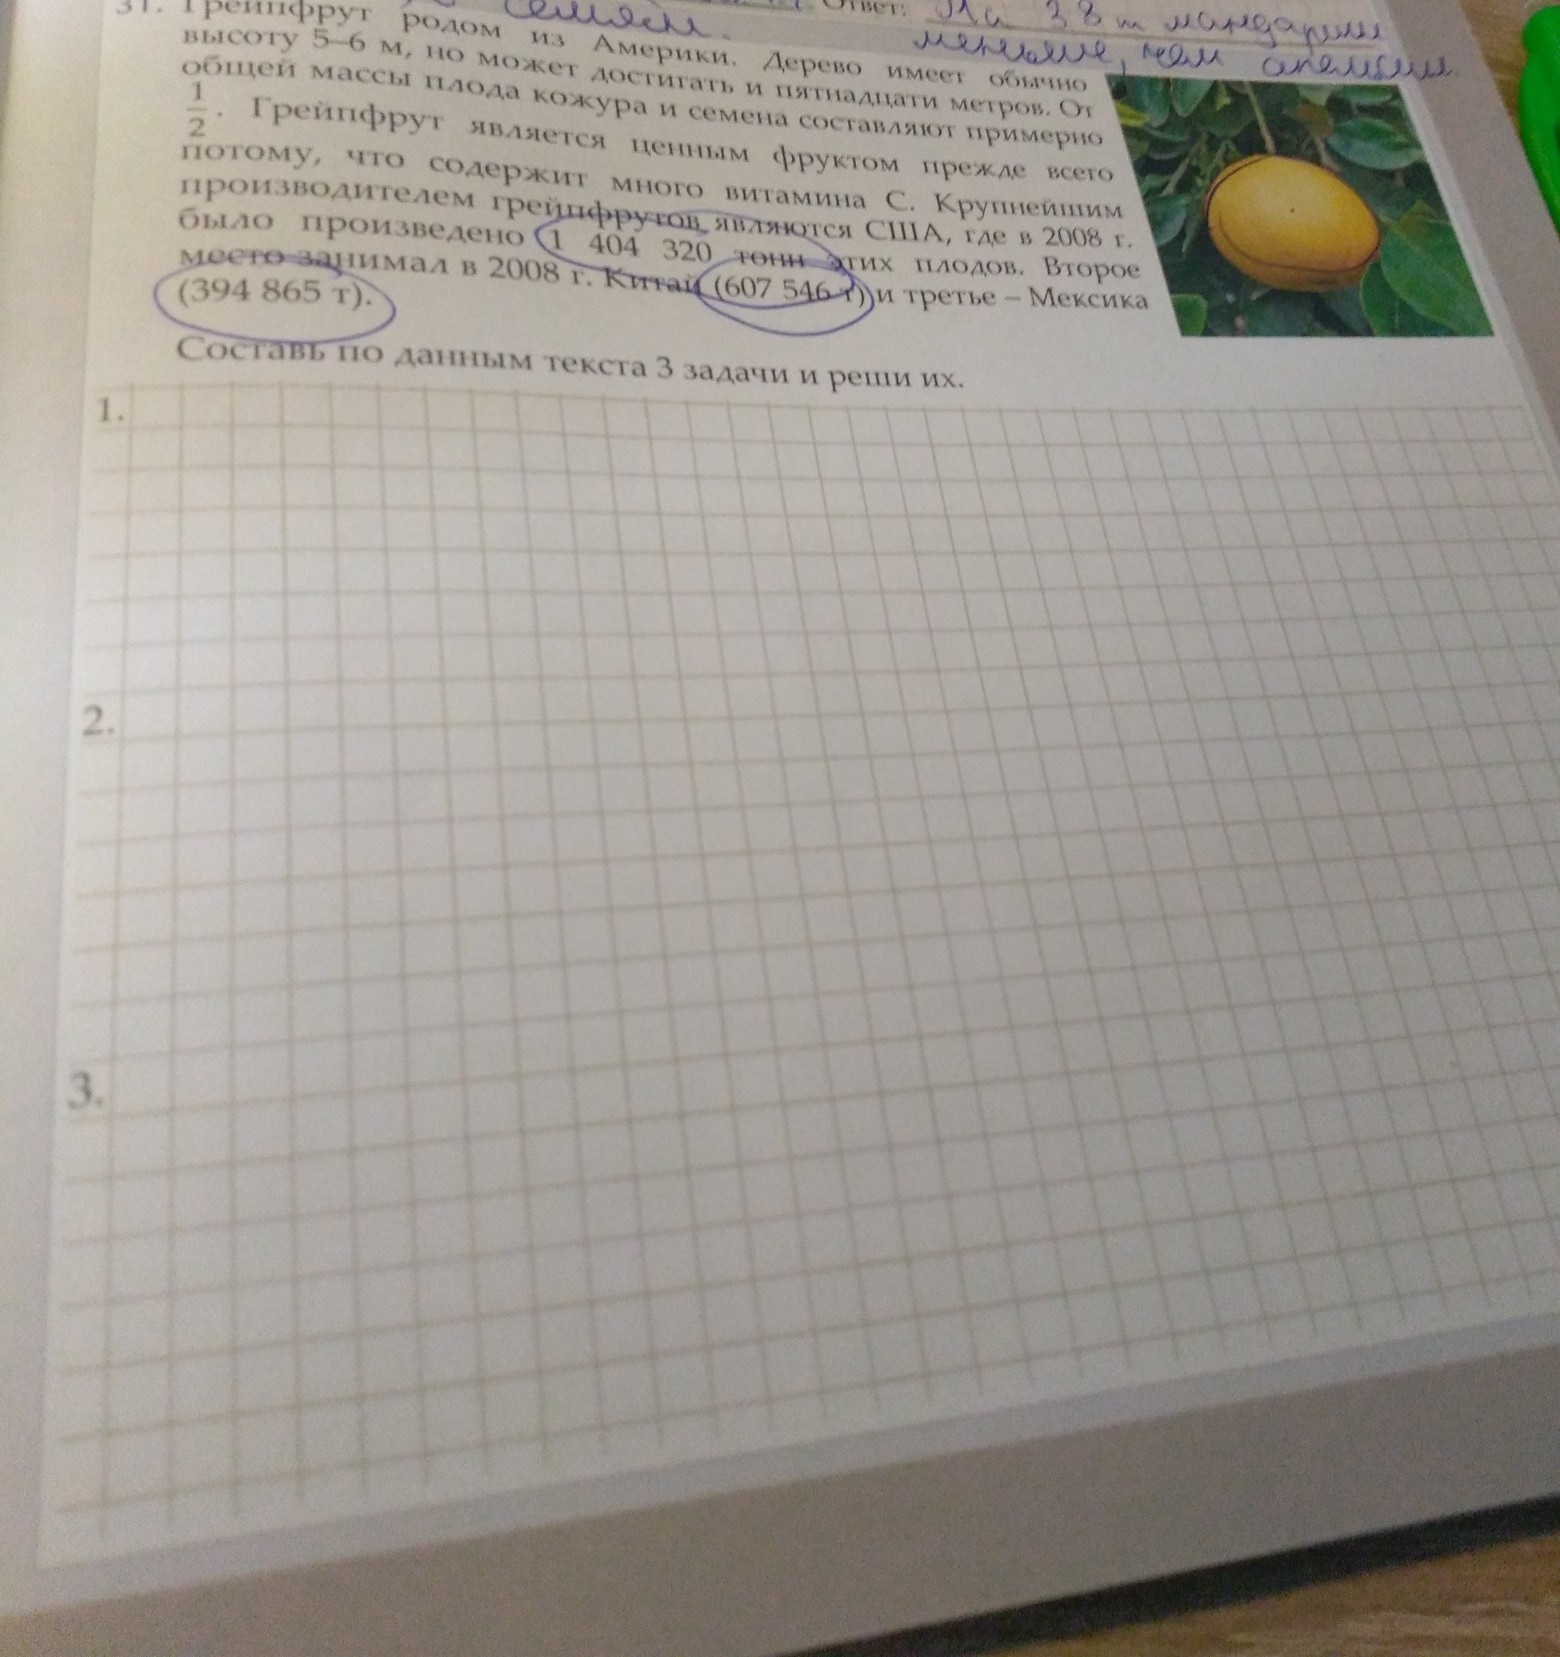 Ответ: На 38 т мандарин
меньше, чем апельсин.
31. Грейпфрут родом из Америки. Дерево имеет обычно
высоту 5–6 м, но может достигать и пятнадцати метров. От
общей массы плода кожура и семена составляют примерно
1/2. Грейпфрут является ценным фруктом прежде всего
потому, что содержит много витамина С. Крупнейшим
производителем грейпфрутов являются США, где в 2008 г.
было произведено 1 404 320 тонн этих плодов. Второе
место занимал в 2008 г. Китай (607 546 т) и третье – Мексика
(394 865 т).
Составь по данным текста 3 задачи и реши их.
1.
2.
3.